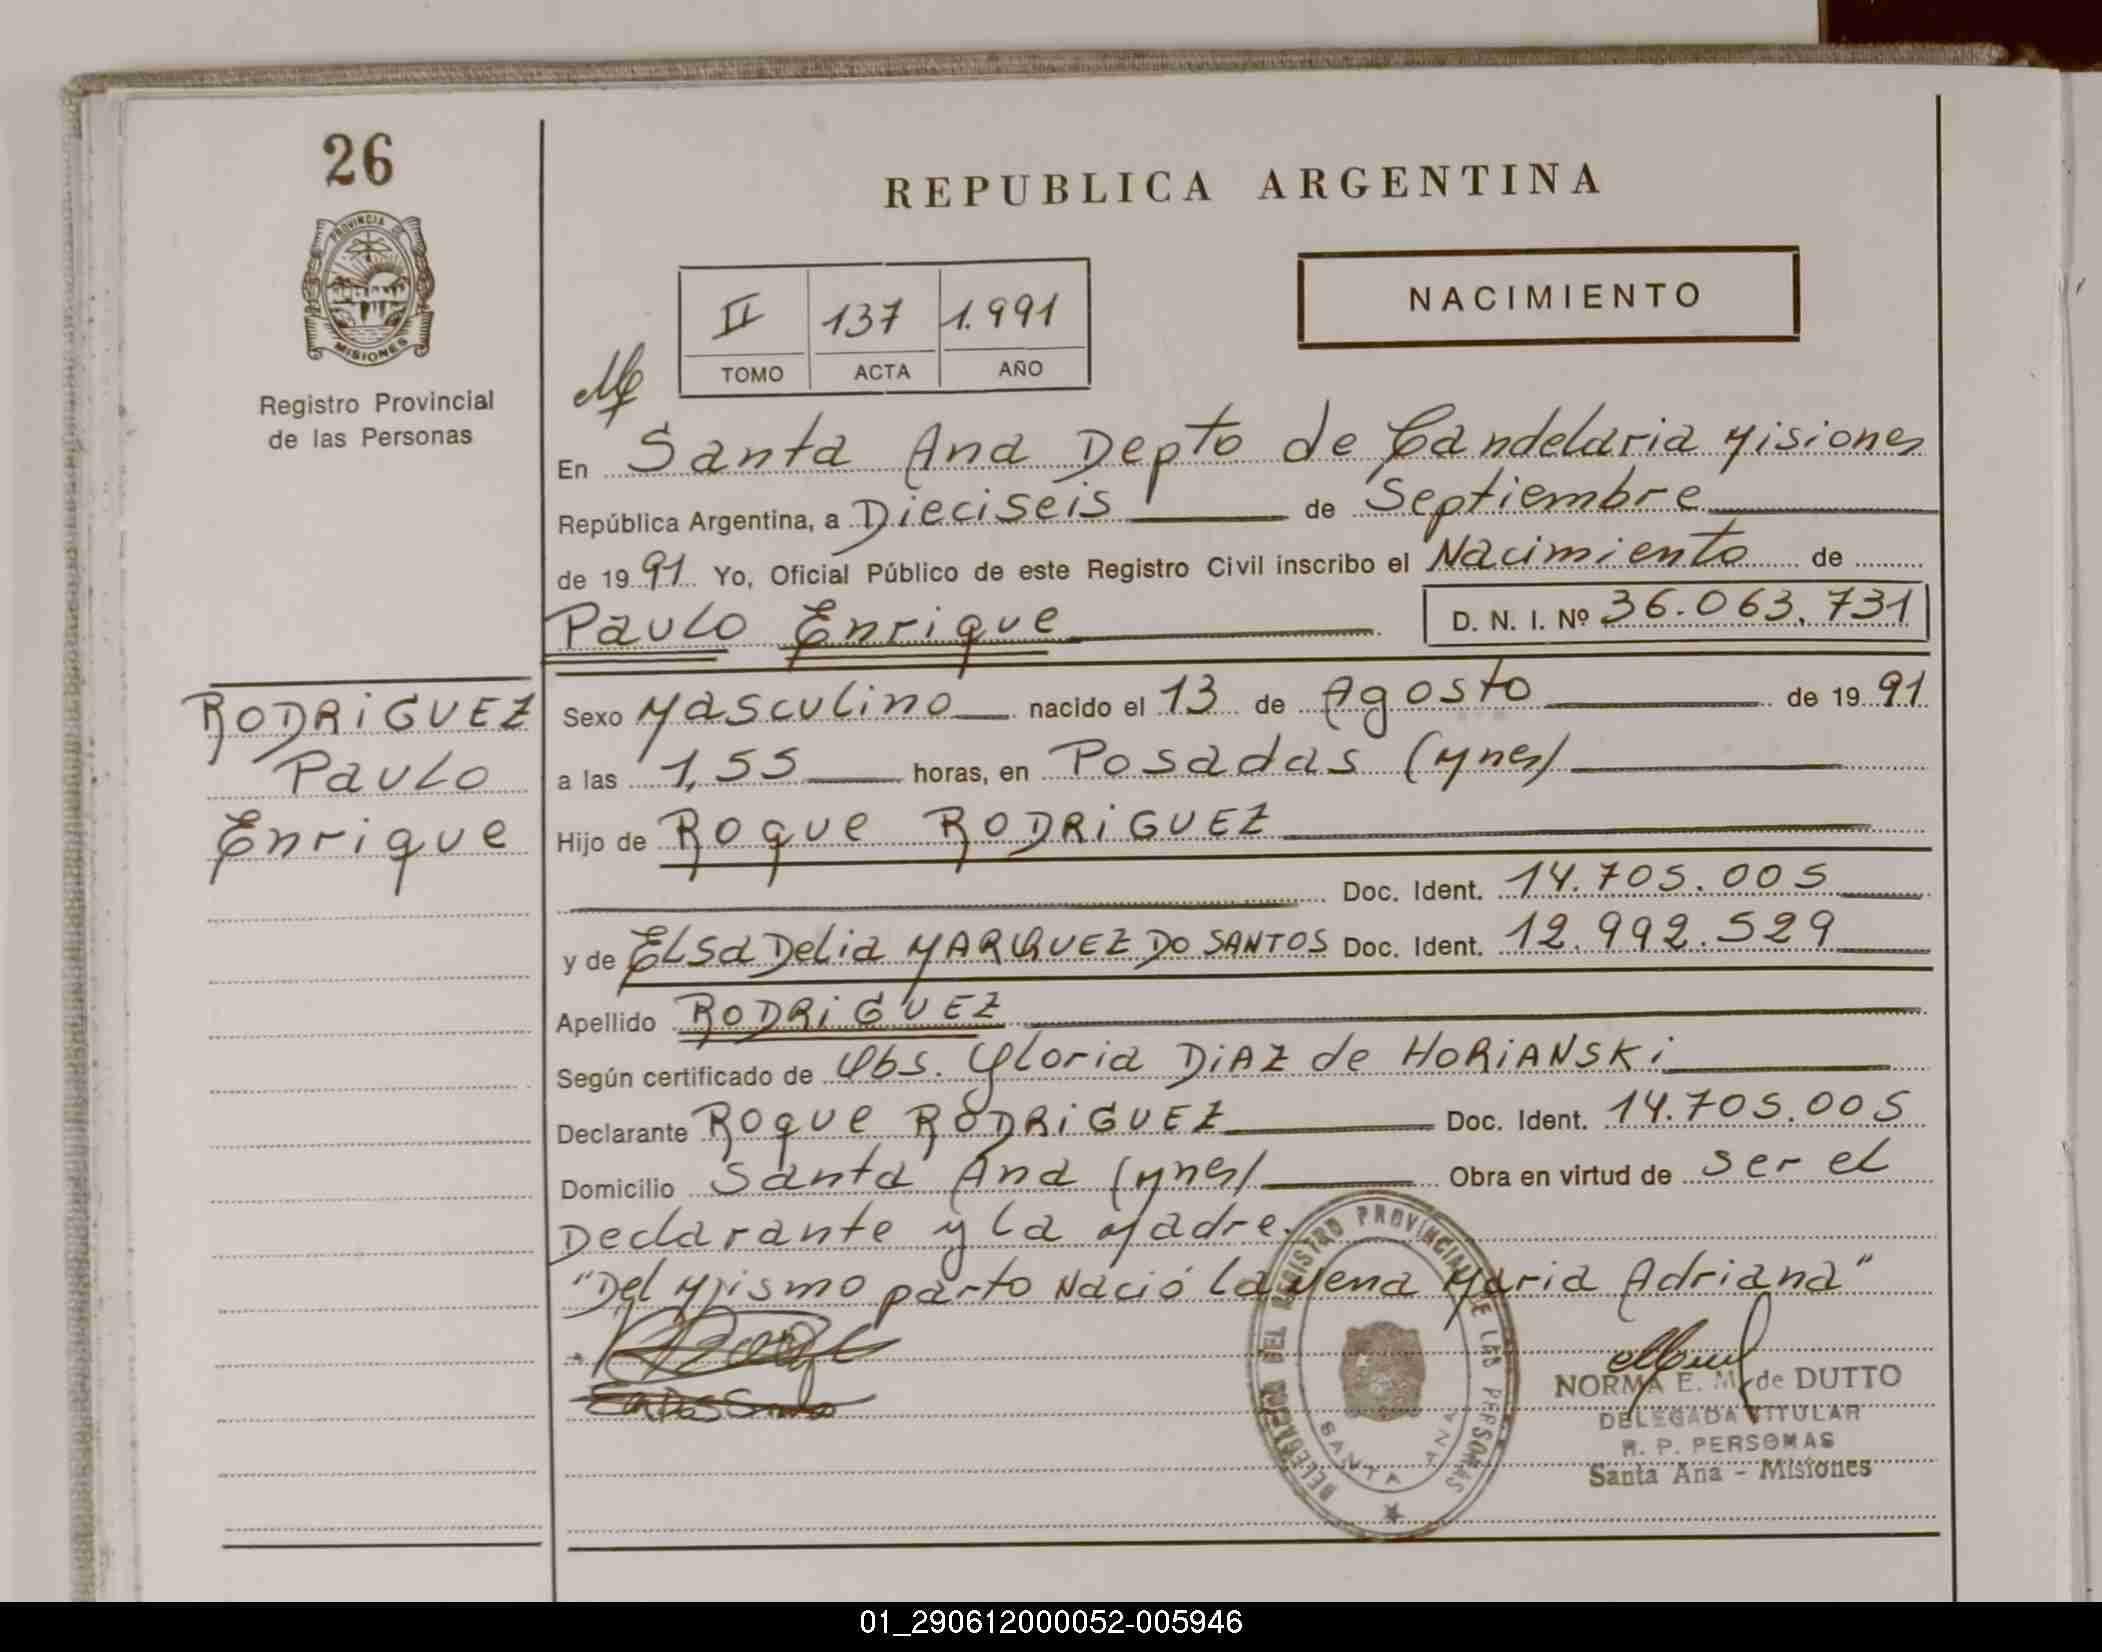 26
PROVINCIA DE
MISIONES
Registro Provincial
de las Personas
REPUBLICA ARGENTINA
II 137 1.991
TOMO ACTA AÑO
NACIMIENTO
En Santa Ana Depto de Candelaria Misiones
República Argentina, a Dieciseis de Septiembre
de 1991 Yo, Oficial Público de este Registro Civil inscribo el Nacimiento de
Paulo Enrique D. N. I. Nº 36.063.731
RODRiGUEZ
Paulo
Enrique
Sexo Masculino nacido el 13 de Agosto de 1991
a las 1,55 horas, en Posadas (Mnes)
Hijo de Roque RODRiGUEZ
Doc. Ident. 14.705.005
y de ELsa Delia MARQUEZ DO SANTOS Doc. Ident. 12.992.529
Apellido RODRiGUEZ
Según certificado de Obs. Gloria DiAZ de HORiANSKi
Declarante Roque RODRiGUEZ Doc. Ident. 14.705.005
Domicilio Santa Ana (Mnes) Obra en virtud de ser el
Declarante y la Madre.
"Del Mismo parto Nació la Mena Maria Adriana"
DELEGACION DEL REGISTRO PROVINCIAL DE LAS PERSONAS
SANTA ANA
NORMA E. M. de DUTTO
DELEGADA TITULAR
R. P. PERSONAS
Santa Ana - Misiones
01_290612000052-005946